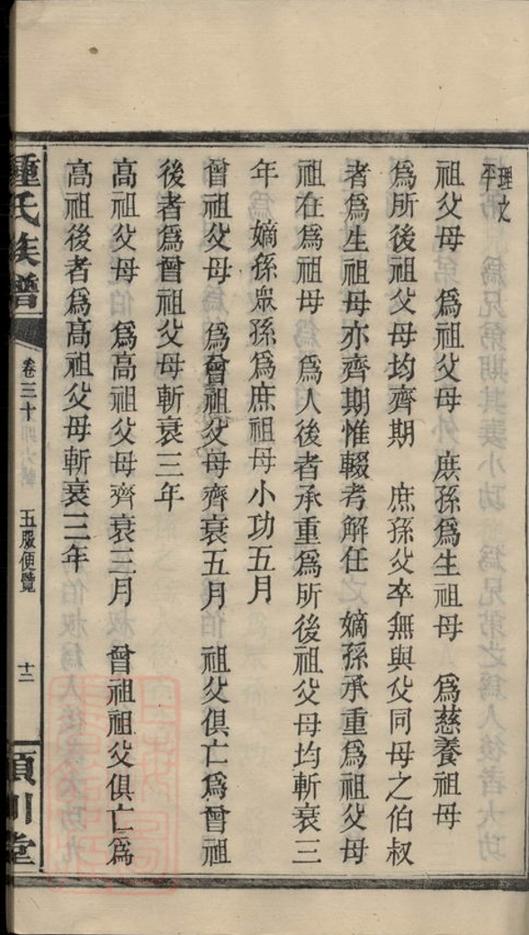 理之
平
祖父母　爲祖父母　庶孫爲生祖母　爲慈養祖母
爲所後祖父母均齊期　庶孫父卒無與父同母之伯叔
者爲生祖母亦齊期惟輟考解任　嫡孫承重爲祖父母
祖在爲祖母　爲人後者承重爲所後祖父母均斬衰三
年　嫡孫眾孫爲庶祖母小功五月
曾祖父母　爲曾祖父母齊衰五月　祖父俱亡爲曾祖
後者爲曾祖父母斬衰三年
高祖父母　爲高祖父母齊衰三月　曾祖祖父俱亡爲
高祖後者爲高祖父母斬衰三年
鍾氏族譜
卷三十
五服便覽
十二
潁川堂